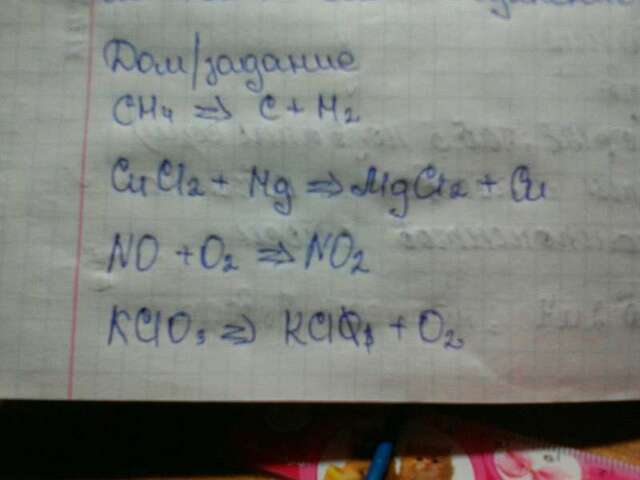 Дом/задание
CH₄ ⇒ C + H₂
CuCl₂ + Mg ⇒ MgCl₂ + Cu
NO + O₂ ⇒ NO₂
KClO₃ ⇒ + O₂